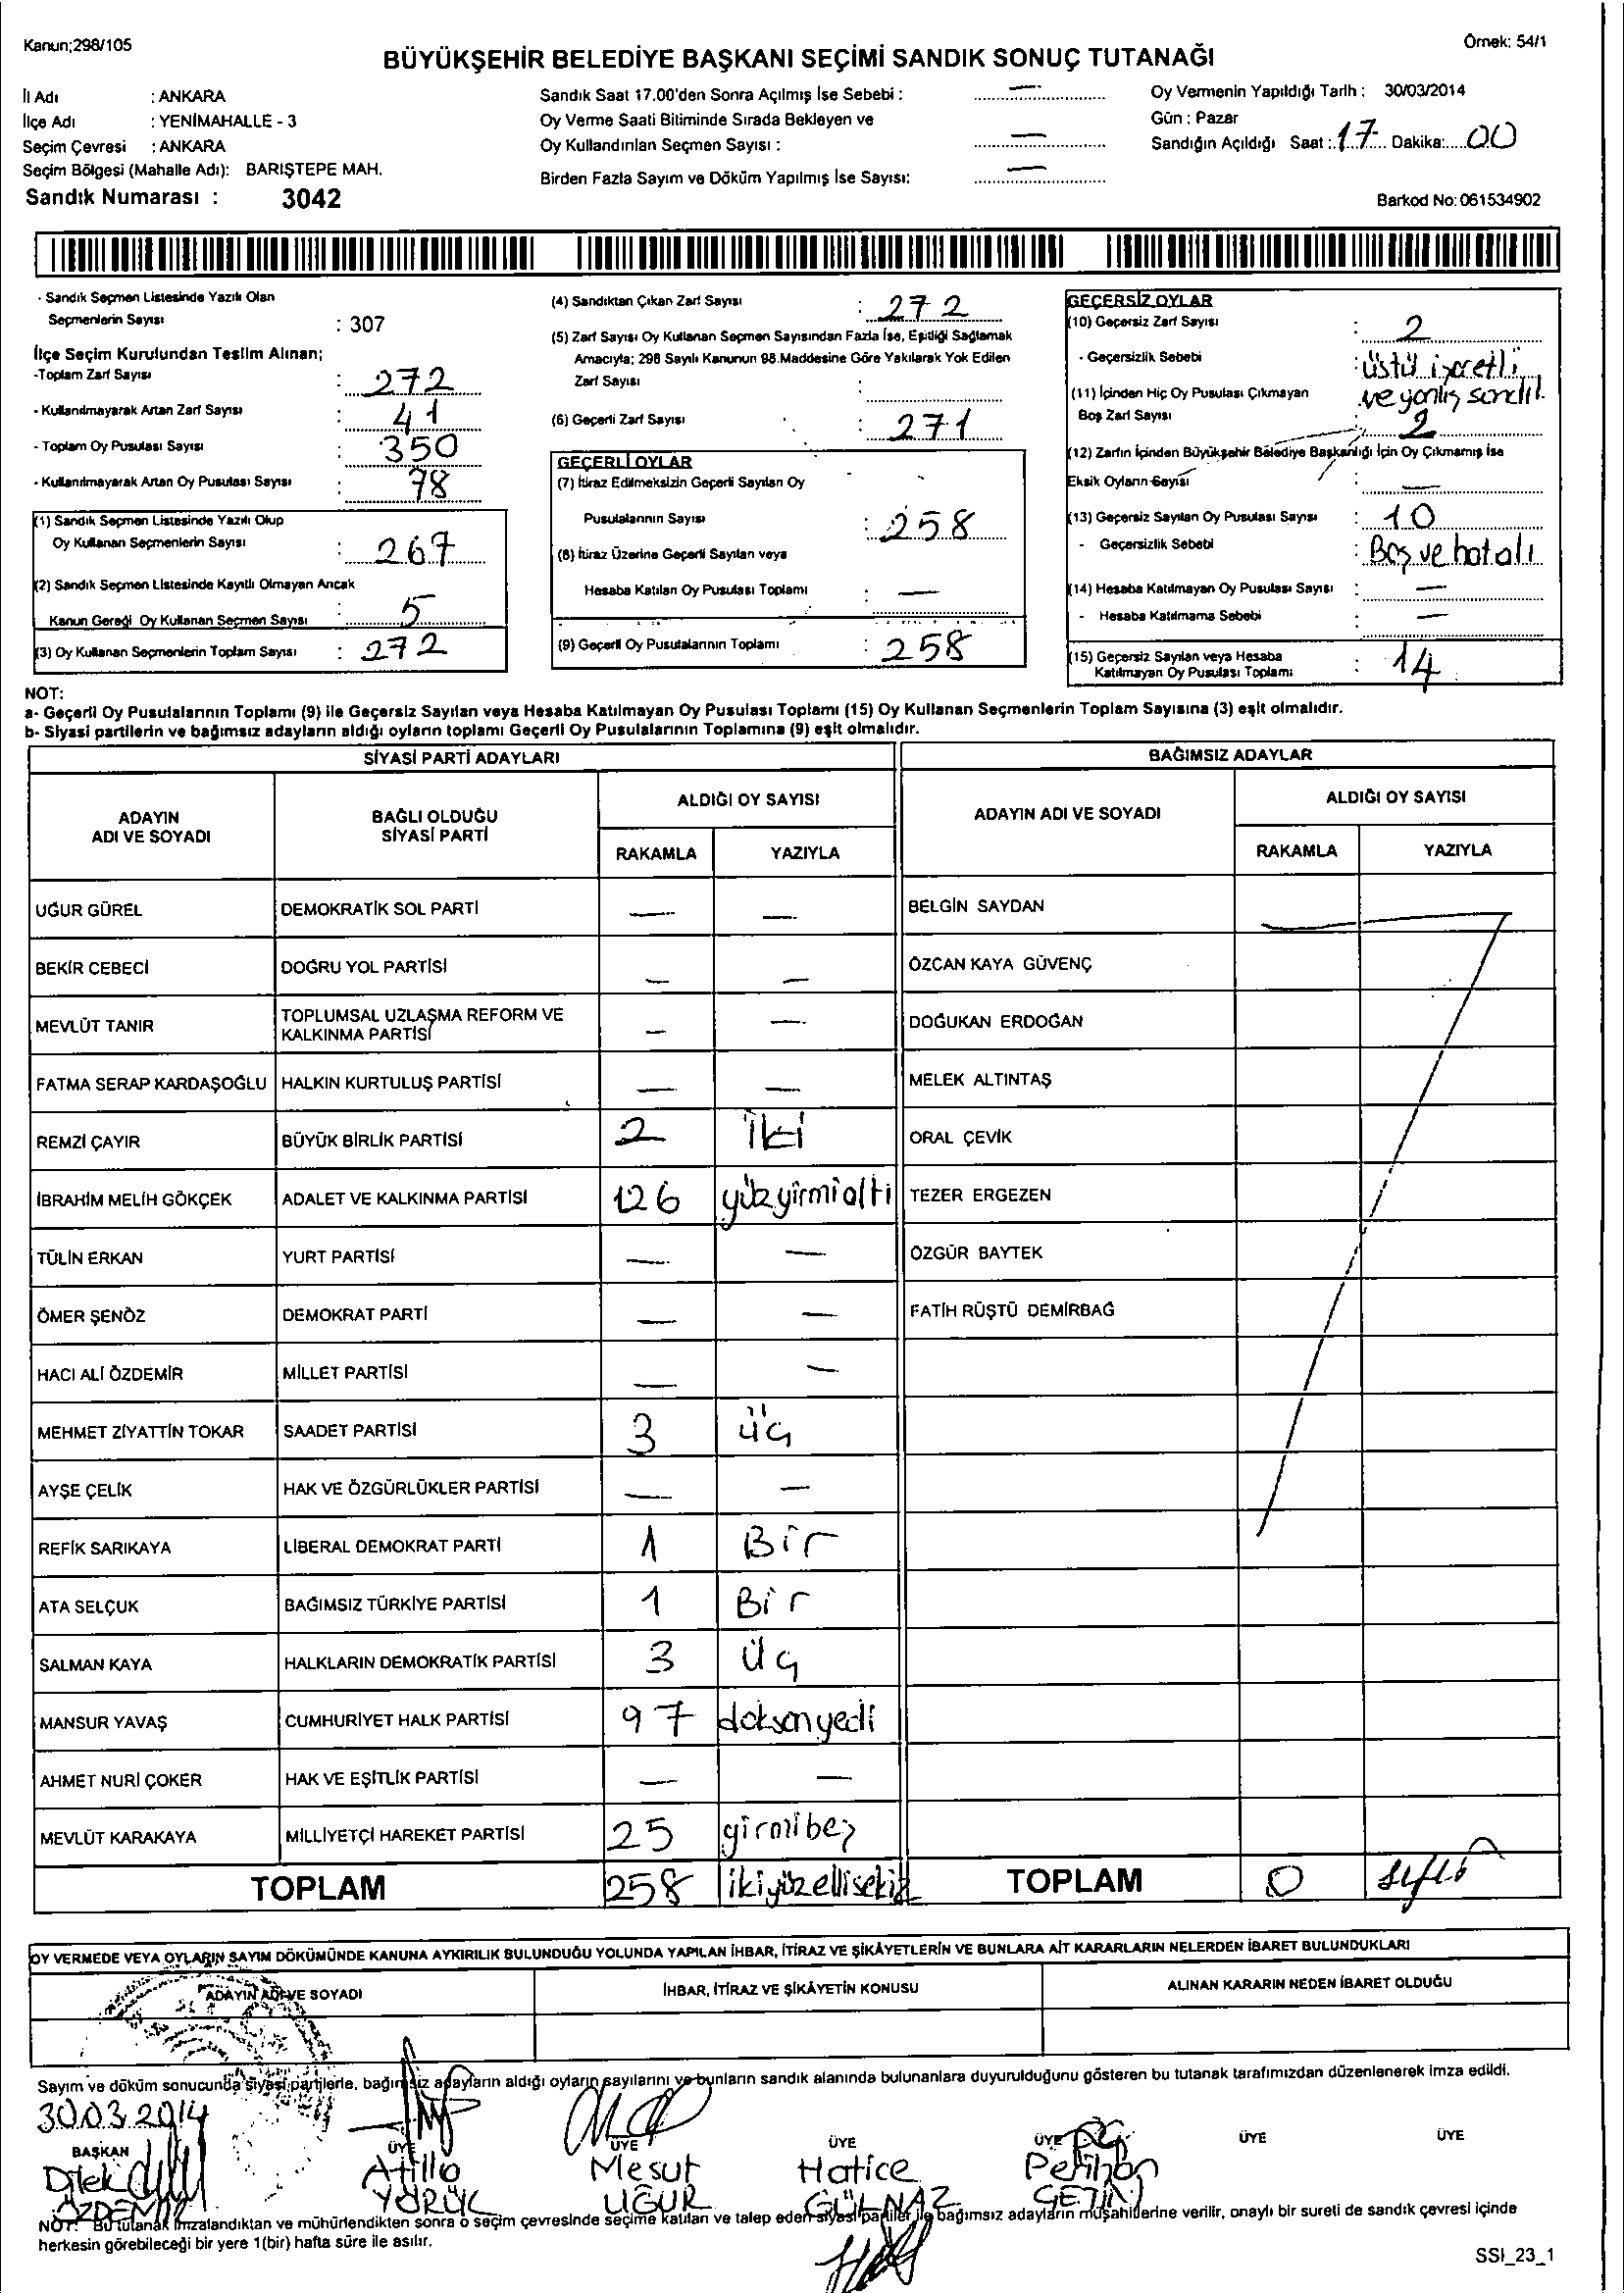 Kanun;298/105
Örnek: 54/1
BÜYÜKŞEHİR BELEDİYE BAŞKANI SEÇİMİ SANDIK SONUÇ TUTANAĞI
İl Adı : ANKARA
İlçe Adı : YENİMAHALLE - 3
Seçim Çevresi : ANKARA
Seçim Bölgesi (Mahalle Adı): BARIŞTEPE MAH.
Sandık Numarası : 3042
Sandık Saat 17.00'den Sonra Açılmış İse Sebebi : —
Oy Verme Saati Bitiminde Sırada Bekleyen ve
Oy Kullandırılan Seçmen Sayısı : —
Birden Fazla Sayım ve Döküm Yapılmış İse Sayısı: —
Oy Vermenin Yapıldığı Tarih : 30/03/2014
Gün : Pazar
Sandığın Açıldığı Saat : 17 Dakika: 00
Barkod No: 061534902
- Sandık Seçmen Listesinde Yazılı Olan
Seçmenlerin Sayısı : 307
İlçe Seçim Kurulundan Teslim Alınan;
-Toplam Zarf Sayısı : 272
- Kullanılmayarak Artan Zarf Sayısı : 41
- Toplam Oy Pusulası Sayısı : 350
- Kullanılmayarak Artan Oy Pusulası Sayısı : 78
(1) Sandık Seçmen Listesinde Yazılı Olup
Oy Kullanan Seçmenlerin Sayısı : 267
(2) Sandık Seçmen Listesinde Kayıtlı Olmayan Ancak
Kanun Gereği Oy Kullanan Seçmen Sayısı : 5
(3) Oy Kullanan Seçmenlerin Toplam Sayısı : 272
(4) Sandıktan Çıkan Zarf Sayısı : 272
(5) Zarf Sayısı Oy Kullanan Seçmen Sayısından Fazla İse, Eşitliği Sağlamak
Amacıyla; 298 Sayılı Kanunun 98.Maddesine Göre Yakılarak Yok Edilen
Zarf Sayısı :
(6) Geçerli Zarf Sayısı : 271
GEÇERLİ OYLAR
(7) İtiraz Edilmeksizin Geçerli Sayılan Oy
Pusulalarının Sayısı : 258
(8) İtiraz Üzerine Geçerli Sayılan veya
Hesaba Katılan Oy Pusulası Toplamı : —
(9) Geçerli Oy Pusulalarının Toplamı : 258
GEÇERSİZ OYLAR
(10) Geçersiz Zarf Sayısı : 2
- Geçersizlik Sebebi : üstü işaretli
ve yanlış sandık
(11) İçinden Hiç Oy Pusulası Çıkmayan
Boş Zarf Sayısı : 2
(12) Zarfın İçinden Büyükşehir Belediye Başkanlığı İçin Oy Çıkmamış İse
Eksik Oyların Sayısı : —
(13) Geçersiz Sayılan Oy Pusulası Sayısı : 10
- Geçersizlik Sebebi : Boş ve hatalı
(14) Hesaba Katılmayan Oy Pusulası Sayısı : —
- Hesaba Katılmama Sebebi : —
(15) Geçersiz Sayılan veya Hesaba
Katılmayan Oy Pusulası Toplamı : 14
NOT:
a- Geçerli Oy Pusulalarının Toplamı (9) ile Geçersiz Sayılan veya Hesaba Katılmayan Oy Pusulası Toplamı (15) Oy Kullanan Seçmenlerin Toplam Sayısına (3) eşit olmalıdır.
b- Siyasi partilerin ve bağımsız adayların aldığı oyların toplamı Geçerli Oy Pusulalarının Toplamına (9) eşit olmalıdır.
SİYASİ PARTİ ADAYLARI
ADAYIN ADI VE SOYADI
BAĞLI OLDUĞU SİYASİ PARTİ
ALDIĞI OY SAYISI
RAKAMLA YAZIYLA
UĞUR GÜREL DEMOKRATİK SOL PARTİ — —
BEKİR CEBECİ DOĞRU YOL PARTİSİ — —
MEVLÜT TANIR TOPLUMSAL UZLAŞMA REFORM VE KALKINMA PARTİSİ — —
FATMA SERAP KARDAŞOĞLU HALKIN KURTULUŞ PARTİSİ — —
REMZİ ÇAYIR BÜYÜK BİRLİK PARTİSİ 2 İki
İBRAHİM MELİH GÖKÇEK ADALET VE KALKINMA PARTİSİ 126 yüzyirmialtı
TÜLİN ERKAN YURT PARTİSİ — —
ÖMER ŞENÖZ DEMOKRAT PARTİ — —
HACI ALİ ÖZDEMİR MİLLET PARTİSİ — —
MEHMET ZİYATTİN TOKAR SAADET PARTİSİ 3 üç
AYŞE ÇELİK HAK VE ÖZGÜRLÜKLER PARTİSİ — —
REFİK SARIKAYA LİBERAL DEMOKRAT PARTİ 1 Bir
ATA SELÇUK BAĞIMSIZ TÜRKİYE PARTİSİ 1 Bir
SALMAN KAYA HALKLARIN DEMOKRATİK PARTİSİ 3 Üç
MANSUR YAVAŞ CUMHURİYET HALK PARTİSİ 97 doksanyedi
AHMET NURİ ÇOKER HAK VE EŞİTLİK PARTİSİ — —
MEVLÜT KARAKAYA MİLLİYETÇİ HAREKET PARTİSİ 25 yirmibeş
TOPLAM 258 ikiyüzellisekiz
BAĞIMSIZ ADAYLAR
ADAYIN ADI VE SOYADI
ALDIĞI OY SAYISI
RAKAMLA YAZIYLA
BELGİN SAYDAN
ÖZCAN KAYA GÜVENÇ
DOĞUKAN ERDOĞAN
MELEK ALTINTAŞ
ORAL ÇEVİK
TEZER ERGEZEN
ÖZGÜR BAYTEK
FATİH RÜŞTÜ DEMİRBAĞ
TOPLAM 0 sıfır
OY VERMEDE VEYA OYLARIN SAYIM DÖKÜMÜNDE KANUNA AYKIRILIK BULUNDUĞU YOLUNDA YAPILAN İHBAR, İTİRAZ VE ŞİKÂYETLERİN VE BUNLARA AİT KARARLARIN NELERDEN İBARET BULUNDUKLARI
ADAYIN ADI VE SOYADI
İHBAR, İTİRAZ VE ŞİKÂYETİN KONUSU
ALINAN KARARIN NEDEN İBARET OLDUĞU
Sayım ve döküm sonucunda siyasi partilerle, bağımsız adayların aldığı oyların sayılarını ve bunların sandık alanında bulunanlara duyurulduğunu gösteren bu tutanak tarafımızdan düzenlenerek imza edildi.
30.03.2014
BAŞKAN ÜYE ÜYE ÜYE ÜYE ÜYE ÜYE
Dilek Atilla Mesut Hatice Perihan
ÖZDEMİR YÖRÜK UĞUR GÜLNAZ ÇETİN
NOT: Bu tutanak imzalandıktan ve mühürlendikten sonra o seçim çevresinde seçime katılan ve talep eden siyasi partiler ile bağımsız adayların müşahitlerine verilir, onaylı bir sureti de sandık çevresi içinde
herkesin görebileceği bir yere 1(bir) hafta süre ile asılır.
SSI_23_1